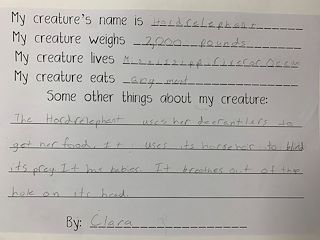 My creature's name is Hordrelephant
My creature weighs 7,000 pounds
My creature lives Mississippi River or Ocean
My creature eats any meat
Some other things about my creature:
The Hordrelephant uses her deerantlers to
get her food. It uses its horsehair to blind
its prey It has babies. It breathes out of the
hole on its head.
By: Clara